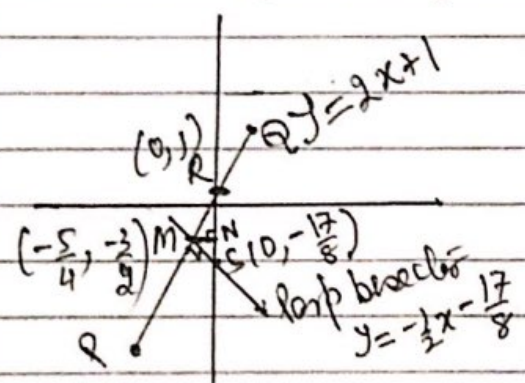 Q y = 2x+1
(0, 1)
R
(-5/4, -3/2) M N
S (0, -17/8)
Perp bisector
y = -1/2 x - 17/8
P